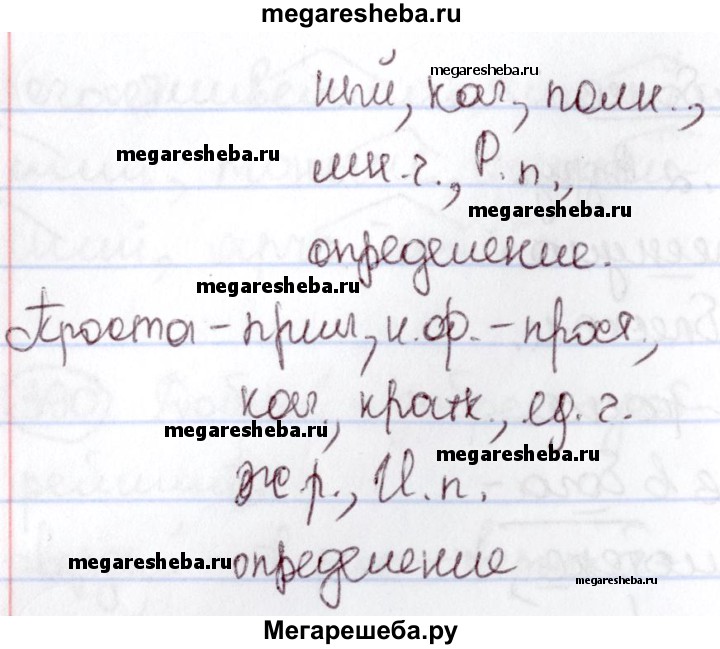 megaresheba.ru
megaresheba.ru
ный, кач, полн.,
megaresheba.ru
мн.ч., Р.п.,
megaresheba.ru
определение.
megaresheba.ru
Проста - прил, н.ф. - прост,
кач, кратк., ед.ч.
megaresheba.ru
megaresheba.ru
ж.р., И.п.
megaresheba.ru
определение
megaresheba.ru
Мегарешеба.ру